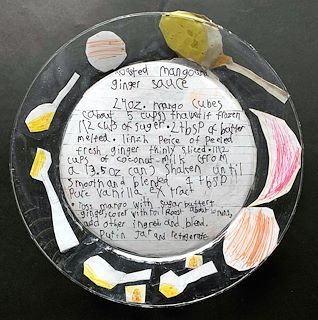 roasted mango and
ginger sauce
24oz. mango cubes
(about 5 cups) thaw if frozen
1 1/2 cups of suger. 2 tbsp of butter
melted. 1 inch peice of peeled
fresh ginger thinly sliced. 1 1/2
cups of coconut milk (from
a 13.5oz can) shaken until
smooth and blended 1 tbsp
Pure vanilla extract
• Toss mango with sugar butter
ginger, cover with foil roast about
add other ingred and blend.
Put in Jar and refrigerate